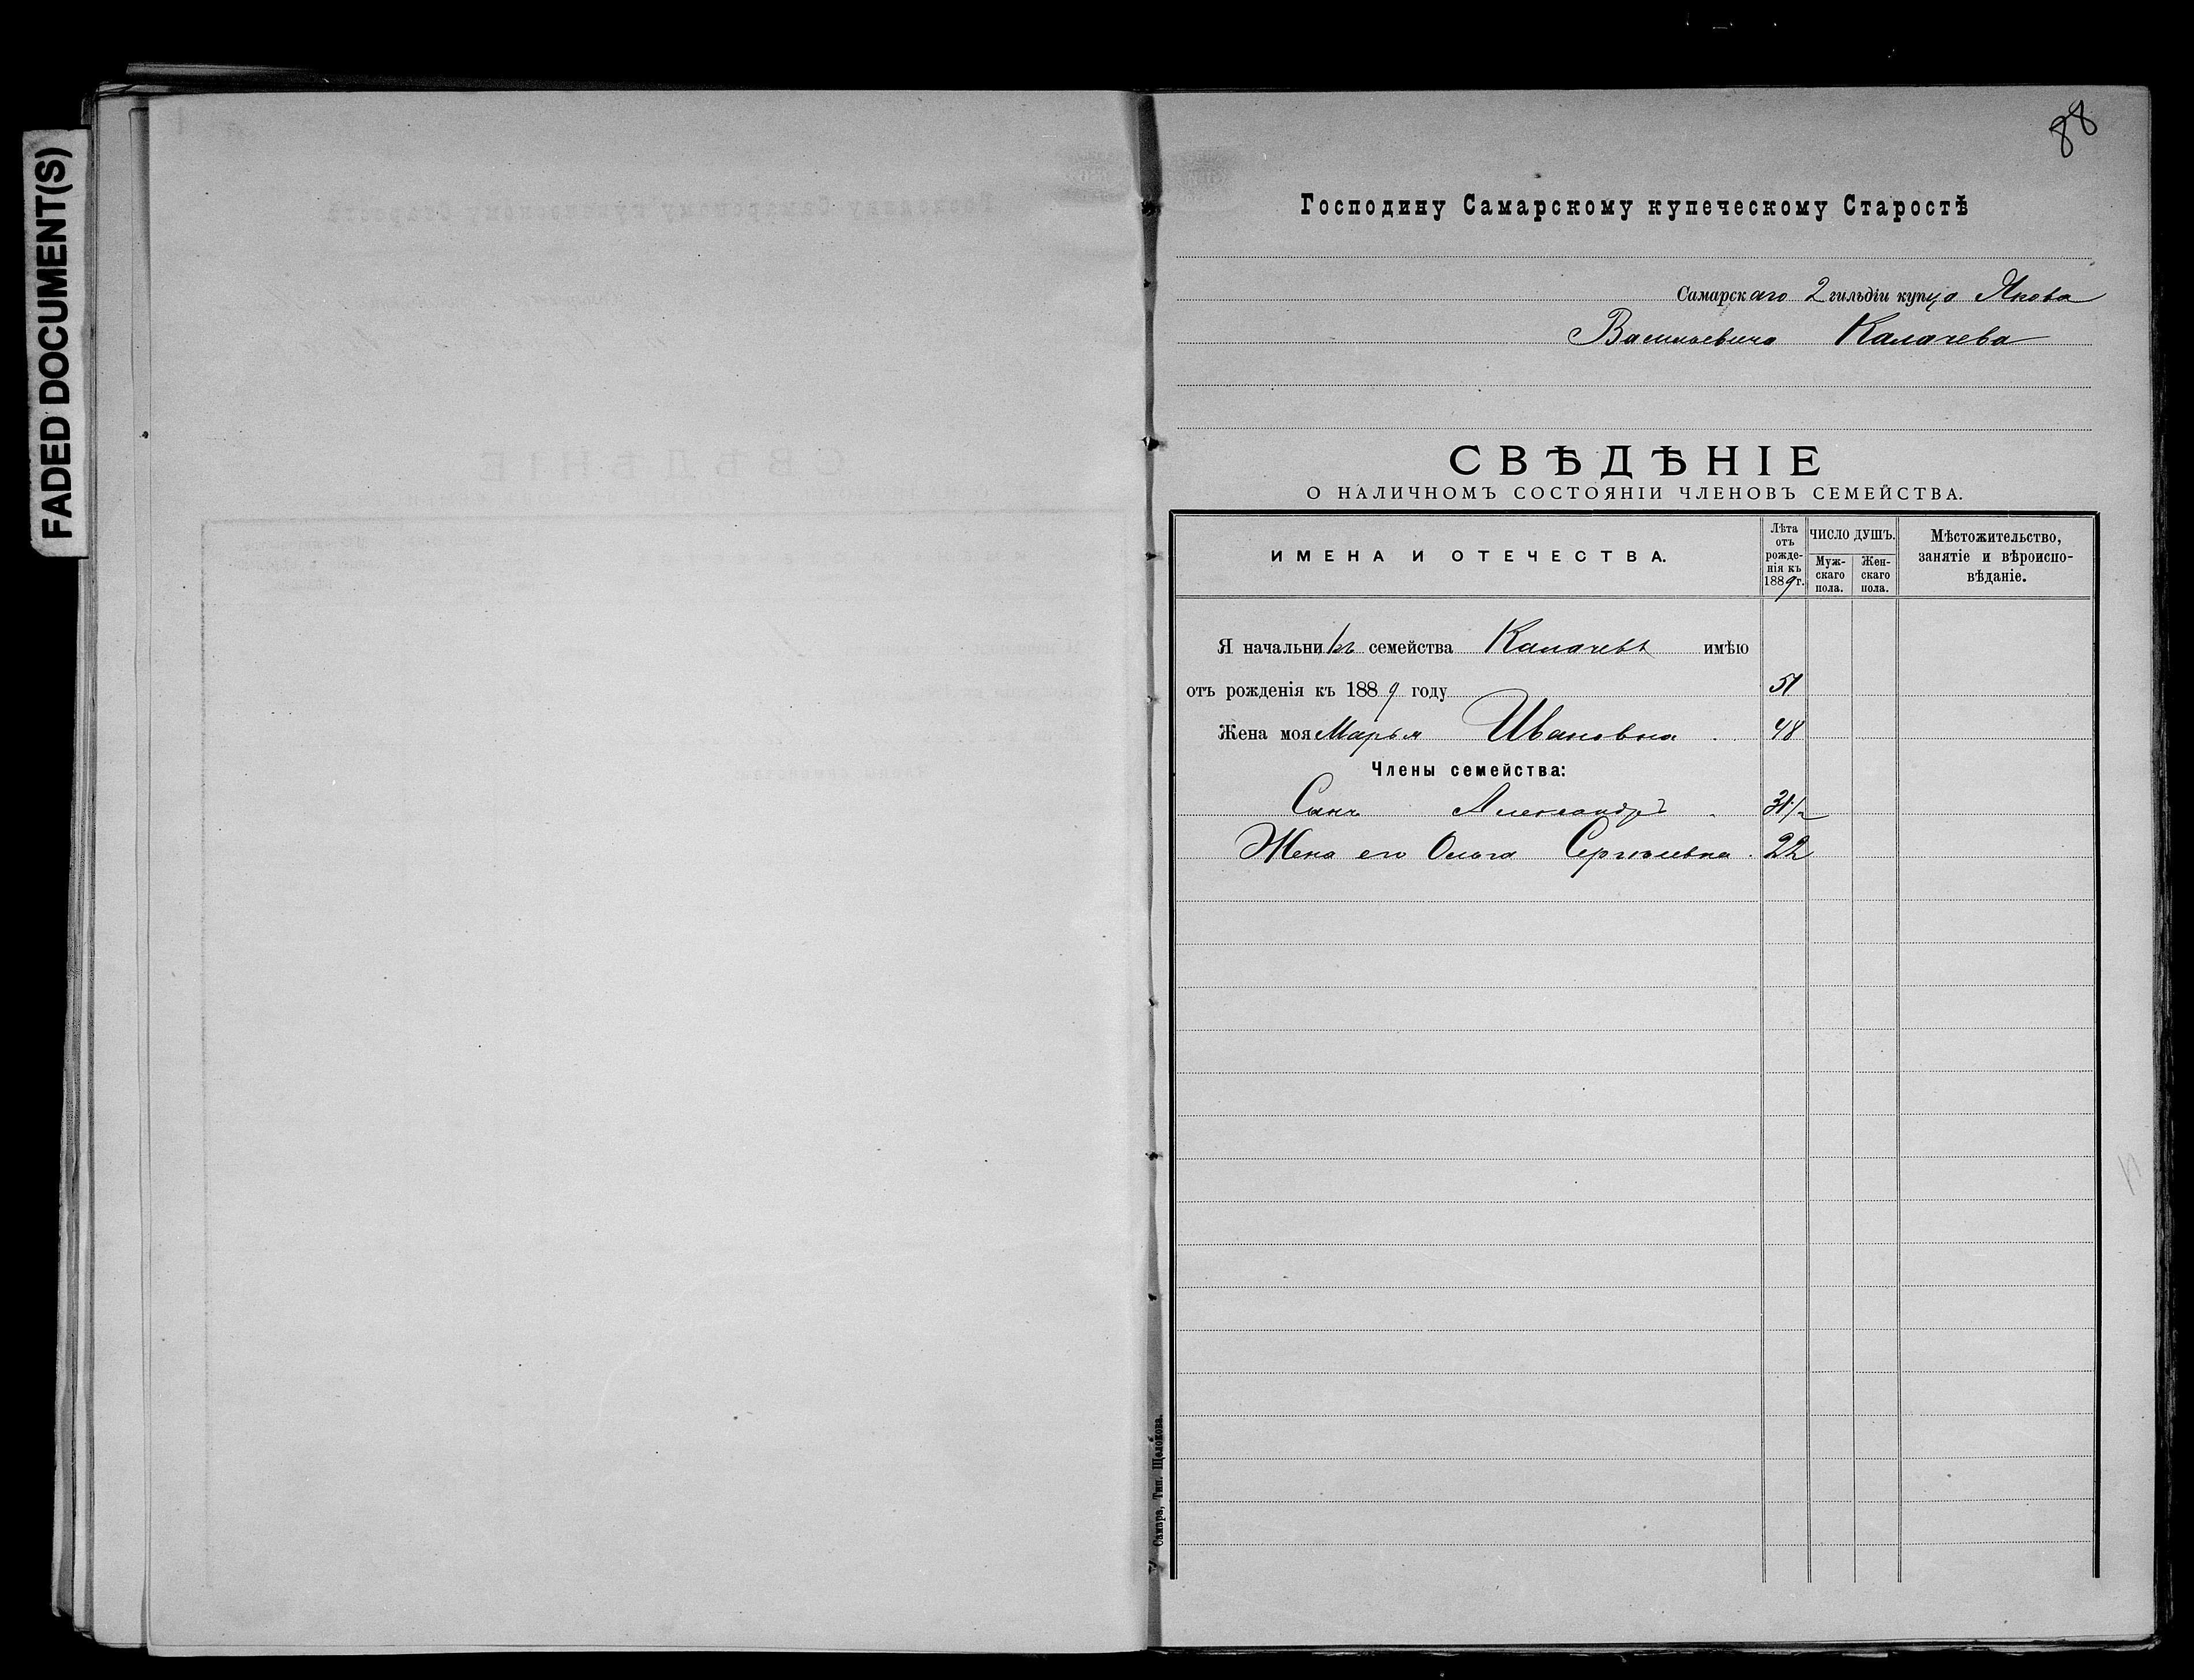 FADED DOCUMENT(S)
88
Господину Самарскому купеческому Старостѣ
Самарскаго 2 гильдіи купца Якова
Васильевича Калачева
СВѢДѢНІЕ
О НАЛИЧНОМЪ СОСТОЯНІИ ЧЛЕНОВЪ СЕМЕЙСТВА.
ИМЕНА И ОТЕЧЕСТВА.
Лѣта
отъ
рожде-
нія къ
1889 г.
ЧИСЛО ДУШЪ.
Муж-
скаго
пола.
Жен-
скаго
пола.
Мѣстожительство,
занятіе и вѣроиспо-
вѣданіе.
Я начальникъ семейства Калачевъ имѣю
отъ рожденія къ 1889 году 51
Жена моя Марья Ивановна . 48
Члены семейства:
Сынъ Александръ .
Жена его Ольга Сергѣевна . 22
Самара, Тип. Щелокова.